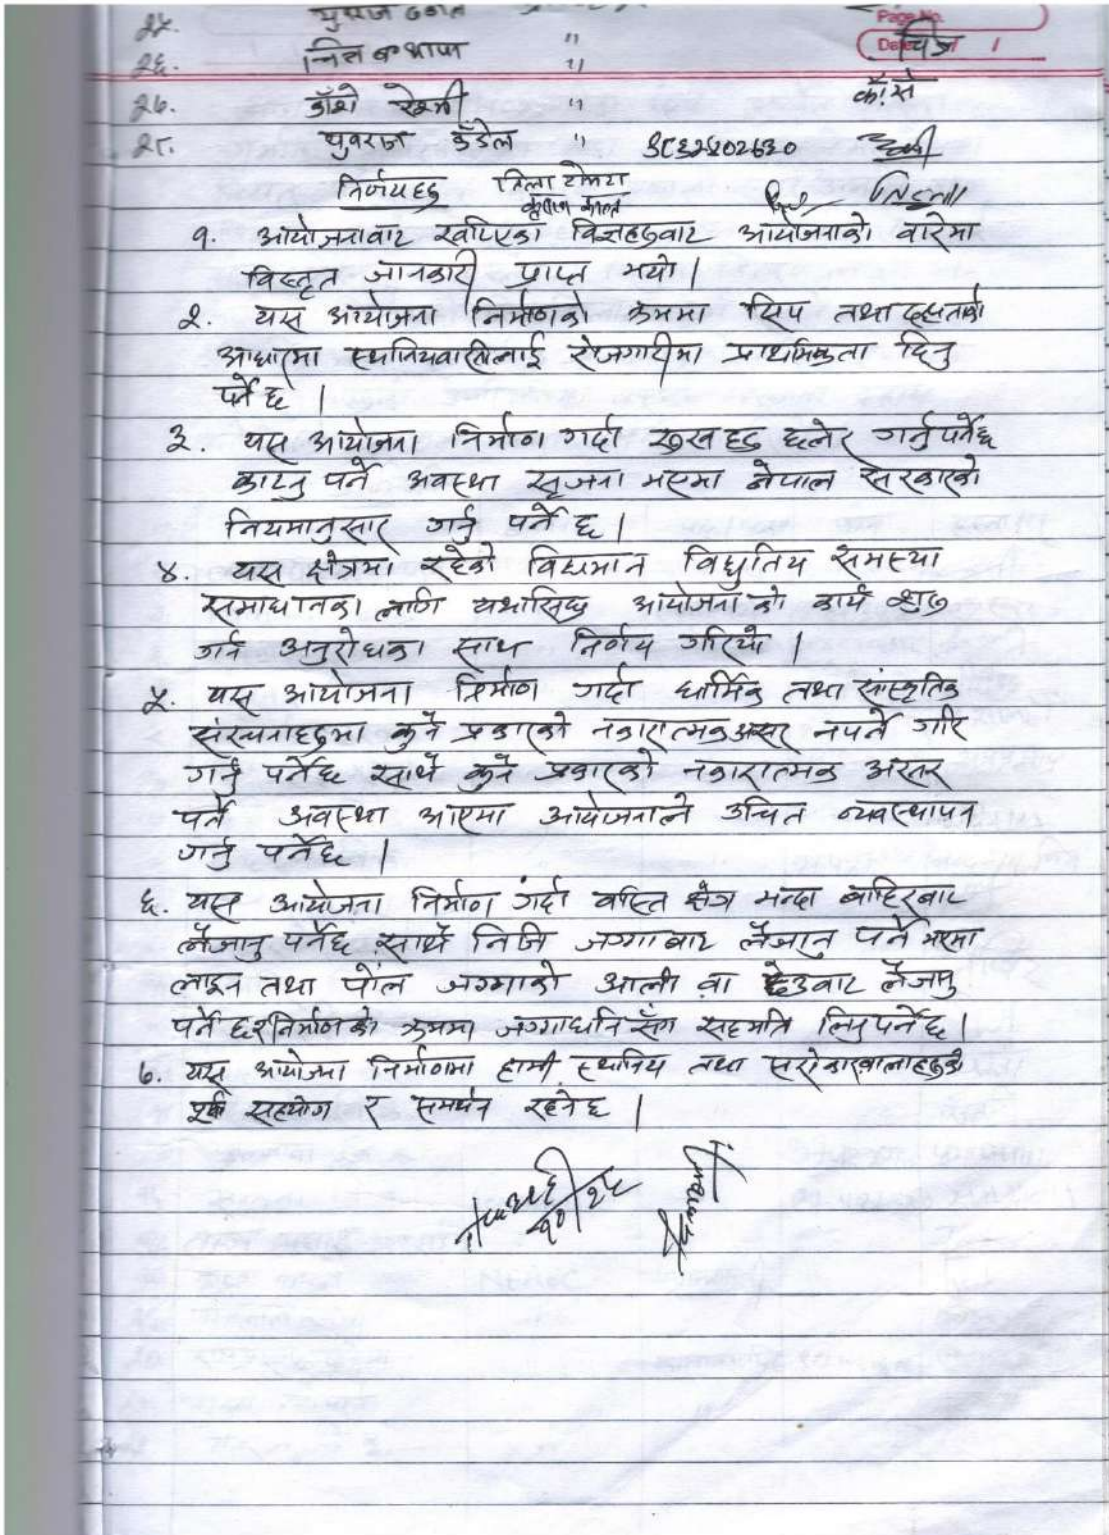 २५. युवराज ढकाल Page No.
२६. चित्र ब थापा " Date / / चित्र
२७. काँशी रेश्मी " काँसे
२८. युवराज कँडेल "
निर्णयहरु
१. आयोजनाबाट खटिएका विज्ञहरुबाट आयोजनाको बारेमा
विस्तृत जानकारी प्राप्त भयो।
२. यस आयोजना निर्माणको क्रममा सिप तथा दक्षताको
आधारमा स्थानियवासीलाई रोजगारीमा प्राथमिकता दिनु
पर्ने छ।
३. यस आयोजना निर्माण गर्दा रुखहरु छलेर गर्नुपर्नेछ
काट्नु पर्ने अवस्था सृजना भएमा नेपाल सरकारको
नियमानुसार गर्नु पर्ने छ।
४. यस क्षेत्रमा रहेको विद्यमान विद्युतिय समस्या
समाधानका लागि यथासिघ्र आयोजनाको कार्य शुरु
गर्न अनुरोधका साथ निर्णय गरियो।
५. यस आयोजना निर्माण गर्दा धार्मिक तथा सांस्कृतिक
संरचनाहरुमा कुनै प्रकारको नकारात्मक असर नपर्ने गरि
गर्नु पर्नेछ साथै कुनै प्रकारको नकारात्मक असर
पर्ने अवस्था आएमा आयोजनाले उचित व्यवस्थापन
गर्नु पर्नेछ।
६. यस आयोजना निर्माण गर्दा वस्ति क्षेत्र भन्दा बाहिरबाट
लैजानु पर्नेछ साथै निजि जग्गाबाट लैजानु पर्ने भएमा
लाइन तथा पोल जग्गाको आली वा छेउबाट लैजानु
पर्ने छ र निर्माणको क्रममा जग्गाधनि सँग सहमति लिनुपर्नेछ।
७. यस आयोजना निर्माणमा हामी स्थानिय तथा सरोकारवालाहरुको
पूर्ण सहयोग र समर्थन रहनेछ।